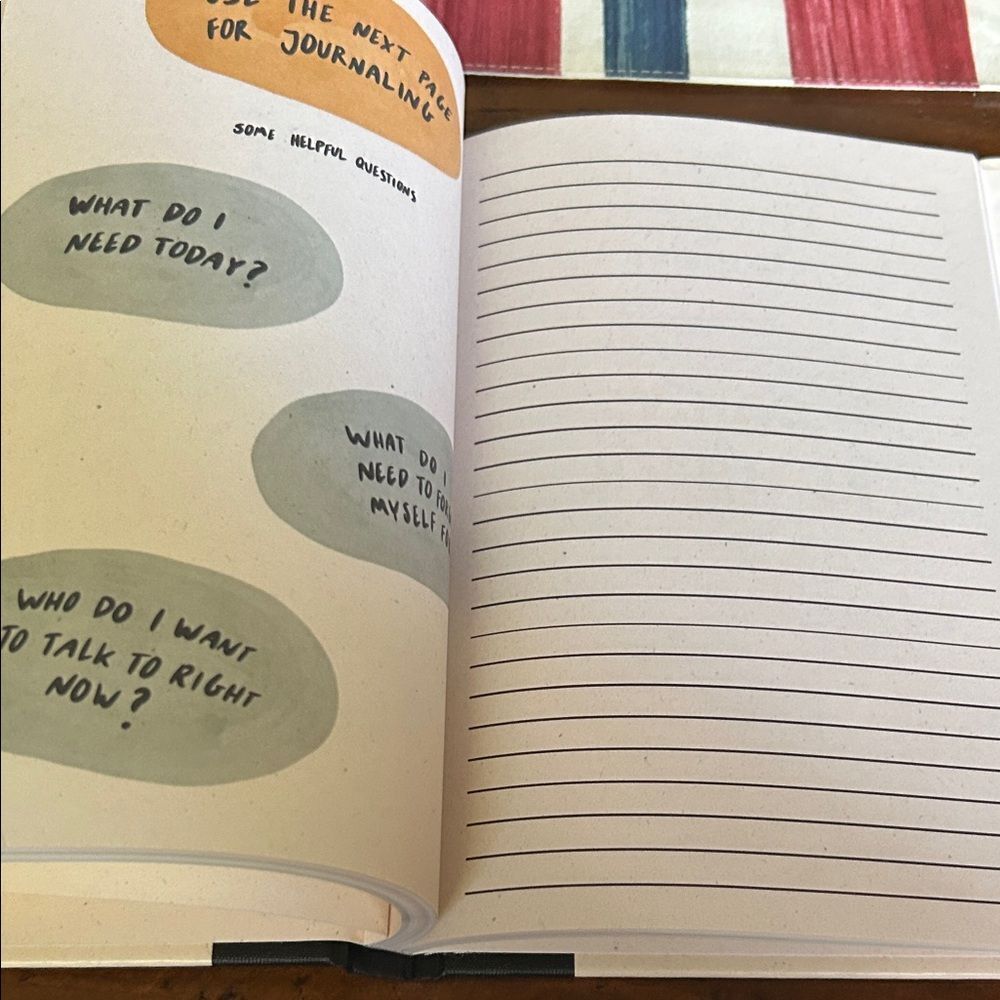 THE NEXT PAGE
FOR JOURNALING
SOME HELPFUL QUESTIONS
WHAT DO I
NEED TODAY?
WHAT DO I
NEED TO
MYSELF
WHO DO I WANT
TO TALK TO RIGHT
NOW?